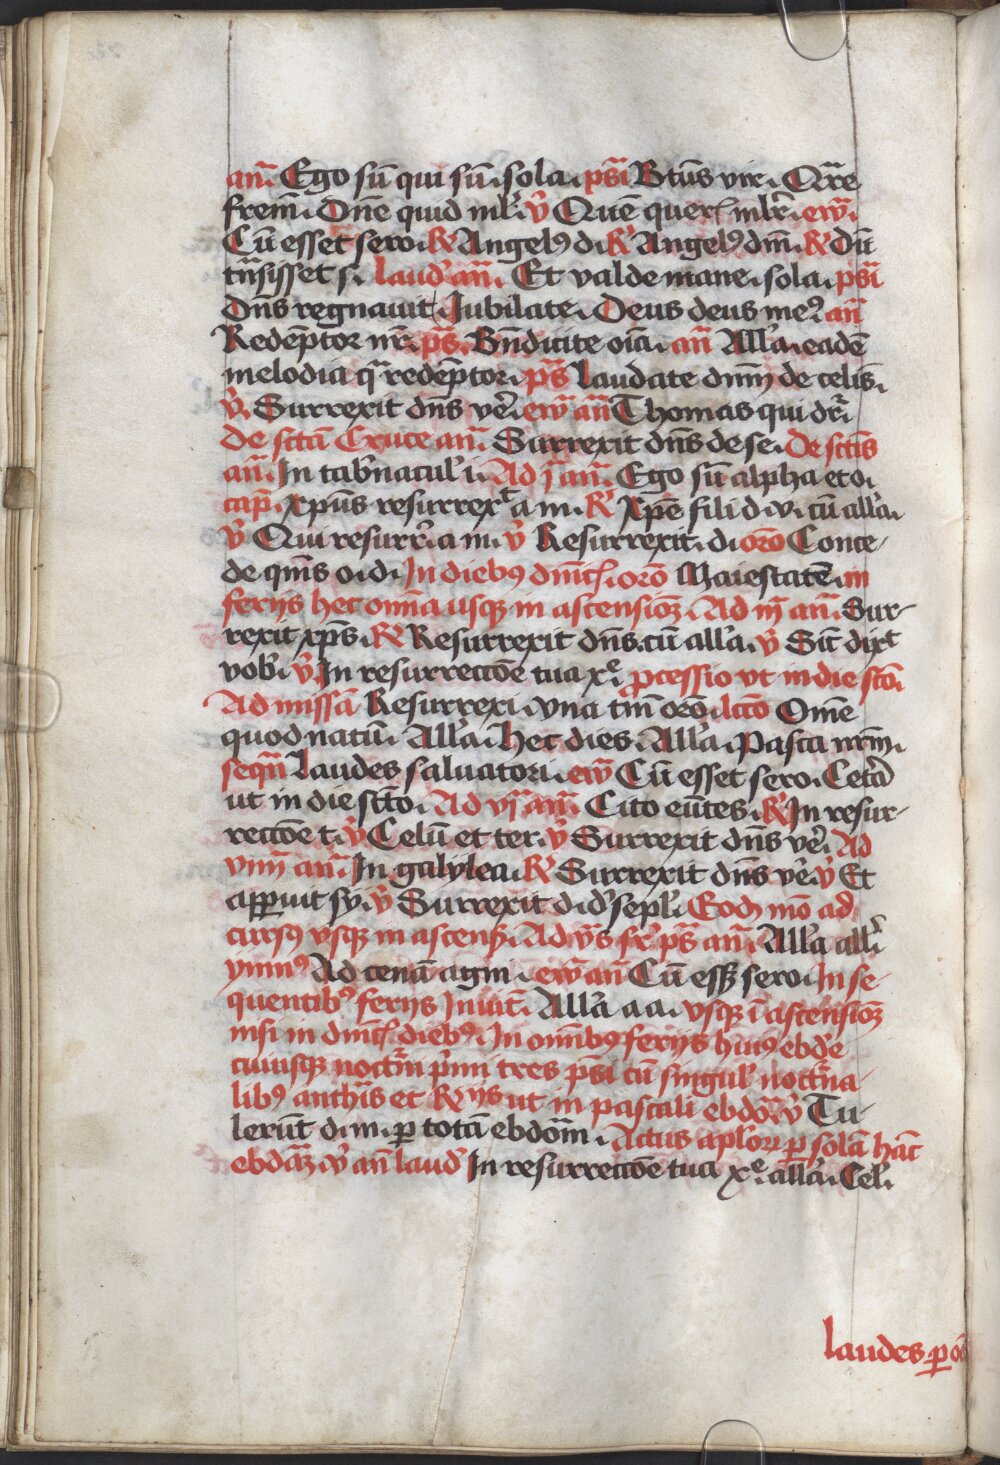 an̄. Ego sū qui sū. sola. ps̄i Btūs vir. Qūare
frem̄. Dn̄e quid ml̓. v̓ Quē quer̄ ml̓r. ew̄.
Cū esset sero. R̓ Angelꝰ d. R̓ Angelꝰ dn̄i. R̓ Dū
tn̄sisset s. laud̓ an̄. Et valde mane. sola. ps̄i
Dn̄s regnauit. Jubilate. Deus deus meꝰ an̄
Redēptor nr̄. ps̄. Bn̄dicite oīa. an̄ All̓a. eadē
melodia q̄ redēptor. ps̄ Laudate dn̄m de celis.
v̓. Surrexit dn̄s ver̓. ew̄ an̄ Thomas qui dr̄.
De sctā Cruce an̄. Surrexit dn̄s de se. De sctīs
an̄. In tab̓nacul̓ i. Ad j an̄. Ego sū alpha et o.
cap̄. Xpūs resurrexᵗ a m. R̓ Xp̄e fili d. v. cū all̓a.
v̓ Qui resurr̓. a m. v̓ Resurrexit. d. orō Conce-
de qm̄s o. d. In diebꝰ dn̄ic̄. orō Maiestatē. in
ferijs hec omīa usqꝫ in ascensioꝫ. Ad iij an̄. Sur-
rexit xp̄s. R̓ Resurrexit dn̄s. cū all̓a. v̓ Sic̄ dixᵗ
vob̓. v̓. In resurreccōe tua xᵉ. processio vt in die scō.
Ad missā Resurrexi. vna tm̄ orō. lcc̄o Om̄e
quod natū. All̓a. Hec dies. All̓a. Pasca nr̄m.
seqū Laudes saluatori. ew̄ Cū esset sero. Ceta̓
ut in die scto. Ad vj an̄. Cito eūtes. R̓ In resur-
reccōe t. v̓ Celū et ter. v̓ Surrexit dn̄s ve̓. Ad
viiij an̄. In galylea. R̓ Surrexit dn̄s ve̓. v̓ Et
apparuit sy. v̓ Surrexit d. d̓ sepl̓. Eodꝫ mō ad
cursꝰ vsqꝫ in ascens̄. Ad vs̄ sr̓. ps̄ an̄. All̓a all̓.
ymnꝰ Ad cenā agni. ew̄ an̄ Cū essꝫ sero. In se-
quentibꝰ ferijs Inuit̄. All̓a a a. vsqꝫ ī ascensioꝫ
nisi in dn̄ic̄. diebꝰ. In om̄ibꝰ ferijs huiꝰ ebde
cuiusqꝫ noct̄ni p̓mi tres ps̄i cū singul̓ noct̄na-
libꝰ anthīs et R̓ijs ut in pascali ebdōa. v̓ Tu-
lerūt d. m. ꝑ totā ebdōm. Actus apl̓oꝝ ꝑ solā hāc
ebdāꝫ. v̓ an̄ laud̓ In resurreccōe tua xᵉ. all̓a. Cel̓.
laudes ꝑ